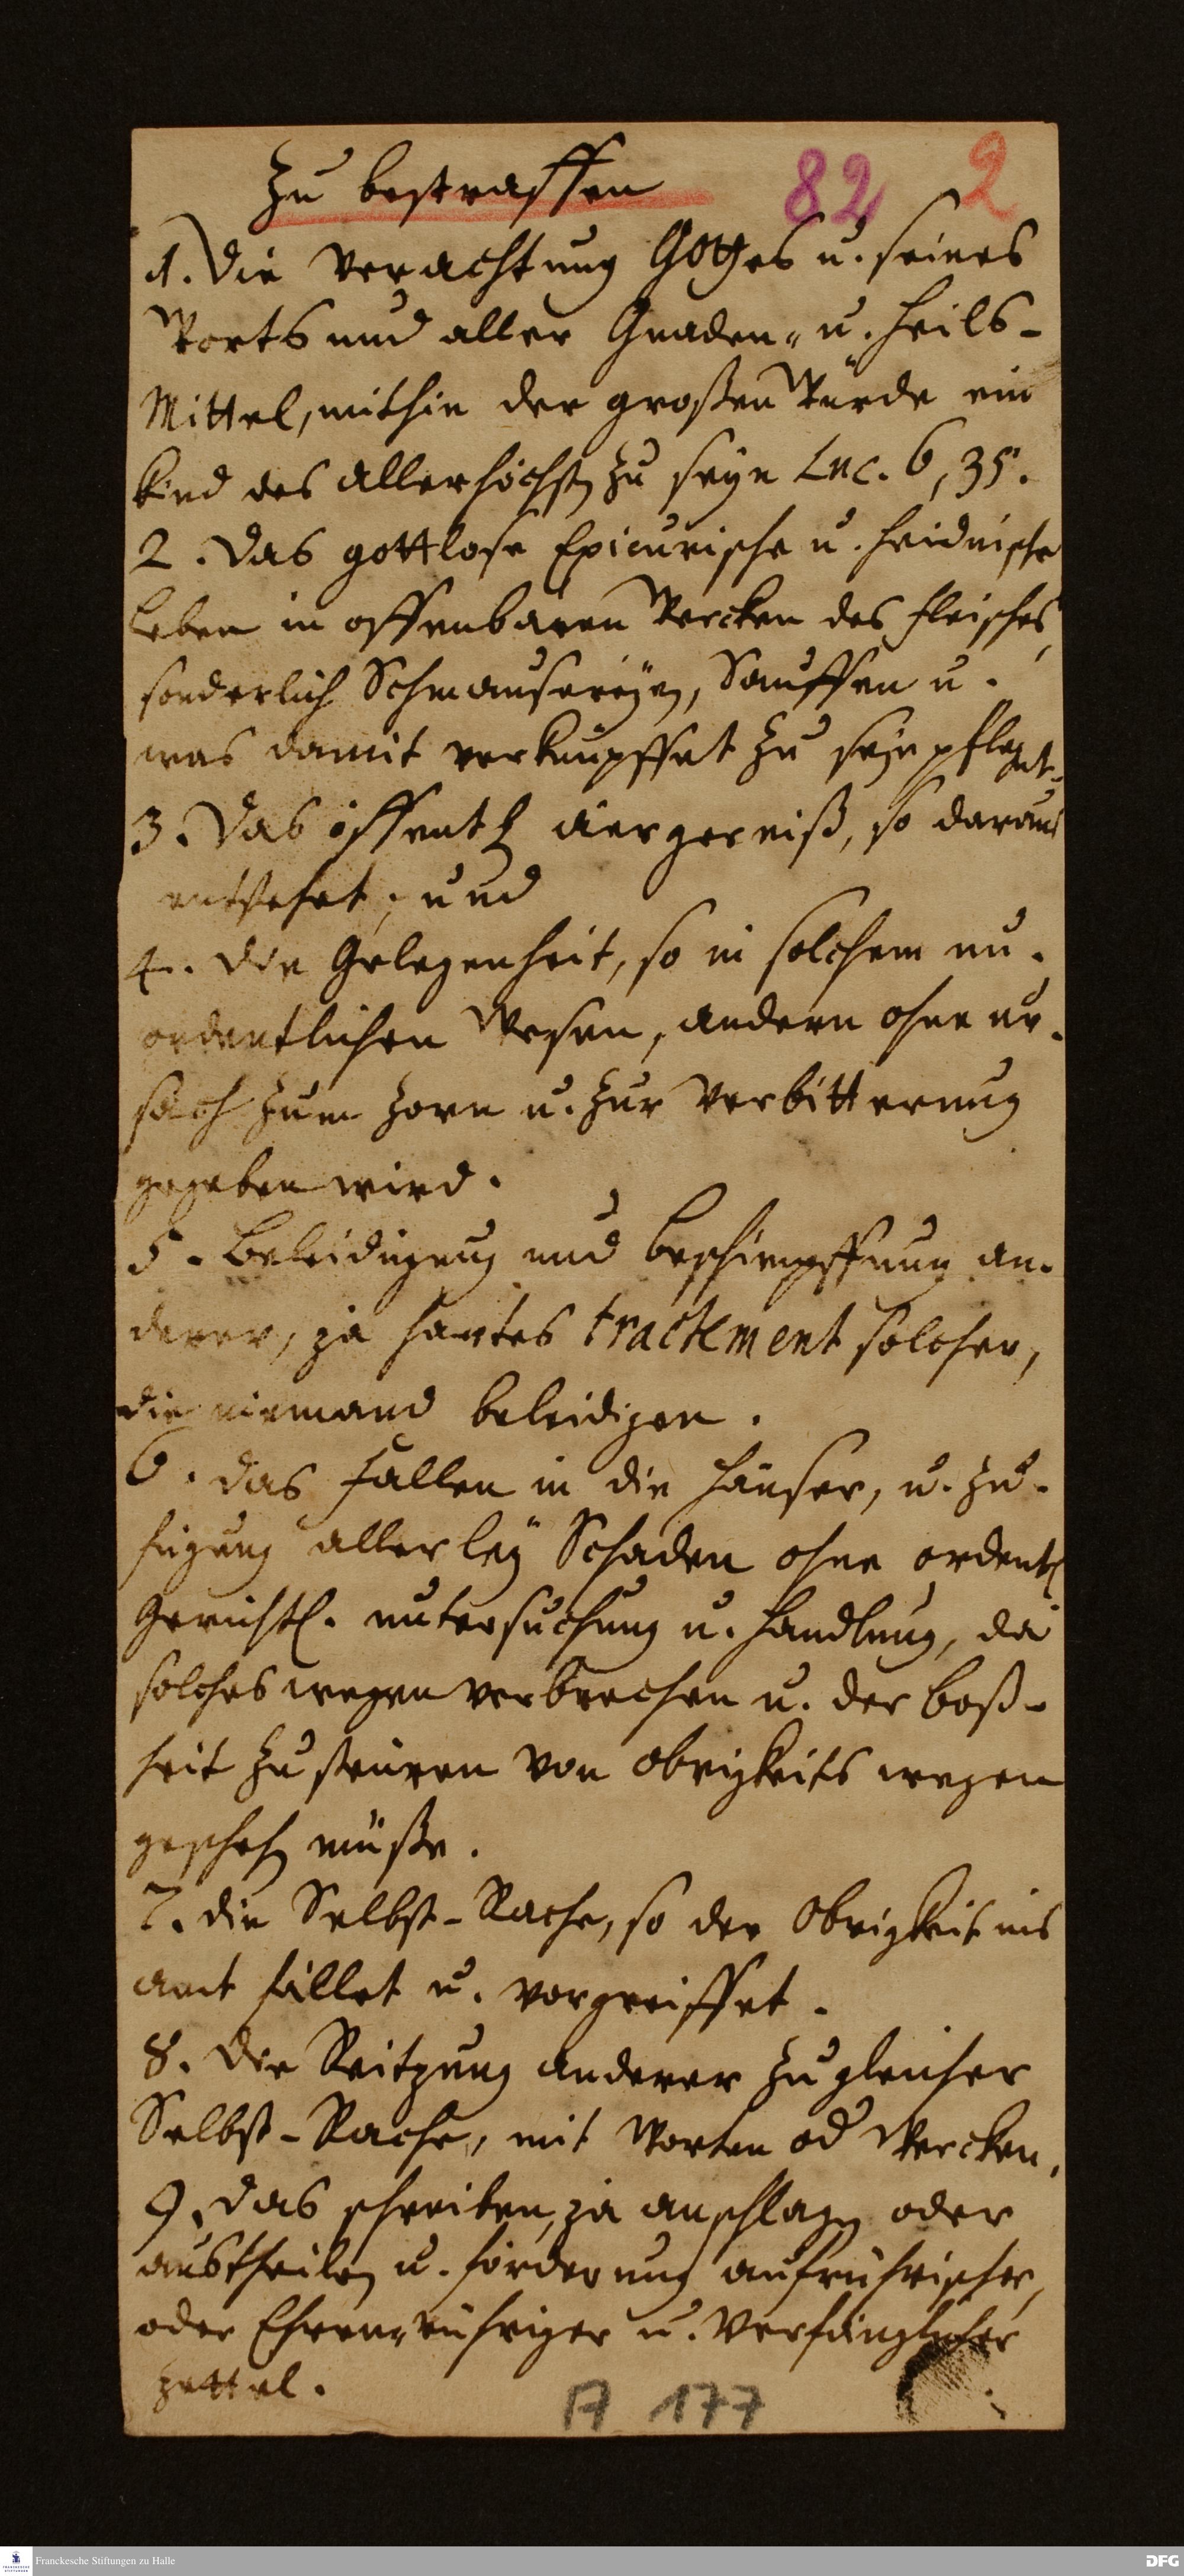 Zu bestraffen 82 2
1. Die Verachtung Gottes u. seines
Worts und aller Gnaden- u. Heils-
Mittel, mithin der großen Würde ein
Kind des Allerhöchsten zu seyn Luc. 6, 35.
2. Das gottlose Epicurische u. heidnische
Leben in offenbaren Wercken des Fleisches,
sonderlich Schmausereyen, Sauffen u.
was damit verknüpffet zu seyn pfleget.
3. Das öffentl. äergerniß, so daraus
entstehet; und
4. Die Gelegenheit, so in solchem un-
ordentlichen Wesen, andern ohne ur-
sach zum Zorn u. zur Verbitterung
gegeben wird.
5. Beleidigung und beschimpffung an-
derer, ja hartes tractement solcher,
die niemand beleidigen.
6. das Fallen in die Häuser, u. zu-
fügung allerley Schaden ohne ordentl.
Gerichtl. untersuchung u. Handlung, da
solches wegen verbrechen u. der boß-
heit zu steuren von obrigkeits wegen
geschehen müste.
7. die Selbst-Rache, so der Obrigkeit ins
amt fället u. vorgreiffet.
8. Die Reitzung anderer zu gleicher
Selbst-Rache, mit Worten od Wercken.
9. Das schreiben, ja anschlagen oder
austheilen u. förderung aufrührischer,
oder Ehren-rühriger u. Verfänglicher
Zettel.
A 177
Franckesche Stiftungen zu Halle
DFG